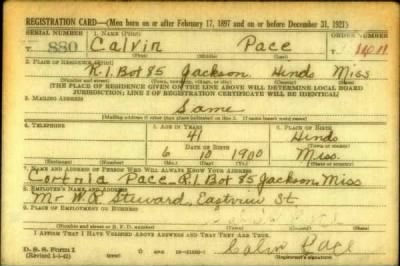 REGISTRATION CARD—(Men born on or after February 17, 1897 and on or before December 31, 1921)
SERIAL NUMBER 1. NAME (Print) ORDER NUMBER
T 880 Calvin Pace
(First) (Middle) (Last)
2. PLACE OF RESIDENCE (Print)
R.1. Box 85 Jackson Hinds Miss
(Number and street) (Town, township, village, or city) (County) (State)
[THE PLACE OF RESIDENCE GIVEN ON THE LINE ABOVE WILL DETERMINE LOCAL BOARD
JURISDICTION; LINE 2 OF REGISTRATION CERTIFICATE WILL BE IDENTICAL]
3. MAILING ADDRESS
Same
(Mailing address if other than place indicated on line 2. If same insert word same)
4. TELEPHONE 5. AGE IN YEARS 6. PLACE OF BIRTH
41 Hinds
DATE OF BIRTH (Town or county)
6 10 1900 Miss.
(Exchange) (Number) (Mo.) (Day) (Yr.) (State or country)
7. NAME AND ADDRESS OF PERSON WHO WILL ALWAYS KNOW YOUR ADDRESS
Pace R.1 Box 85 Jackson, Miss
8. EMPLOYER'S NAME AND ADDRESS
Mr W.R. Steward, St.
9. PLACE OF EMPLOYMENT OR BUSINESS
(Number and street or R. F. D. number) (Town) (County) (State)
I AFFIRM THAT I HAVE VERIFIED ABOVE ANSWERS AND THAT THEY ARE TRUE.
D. S. S. Form 1 Calvin Pace
(Registrant's signature)